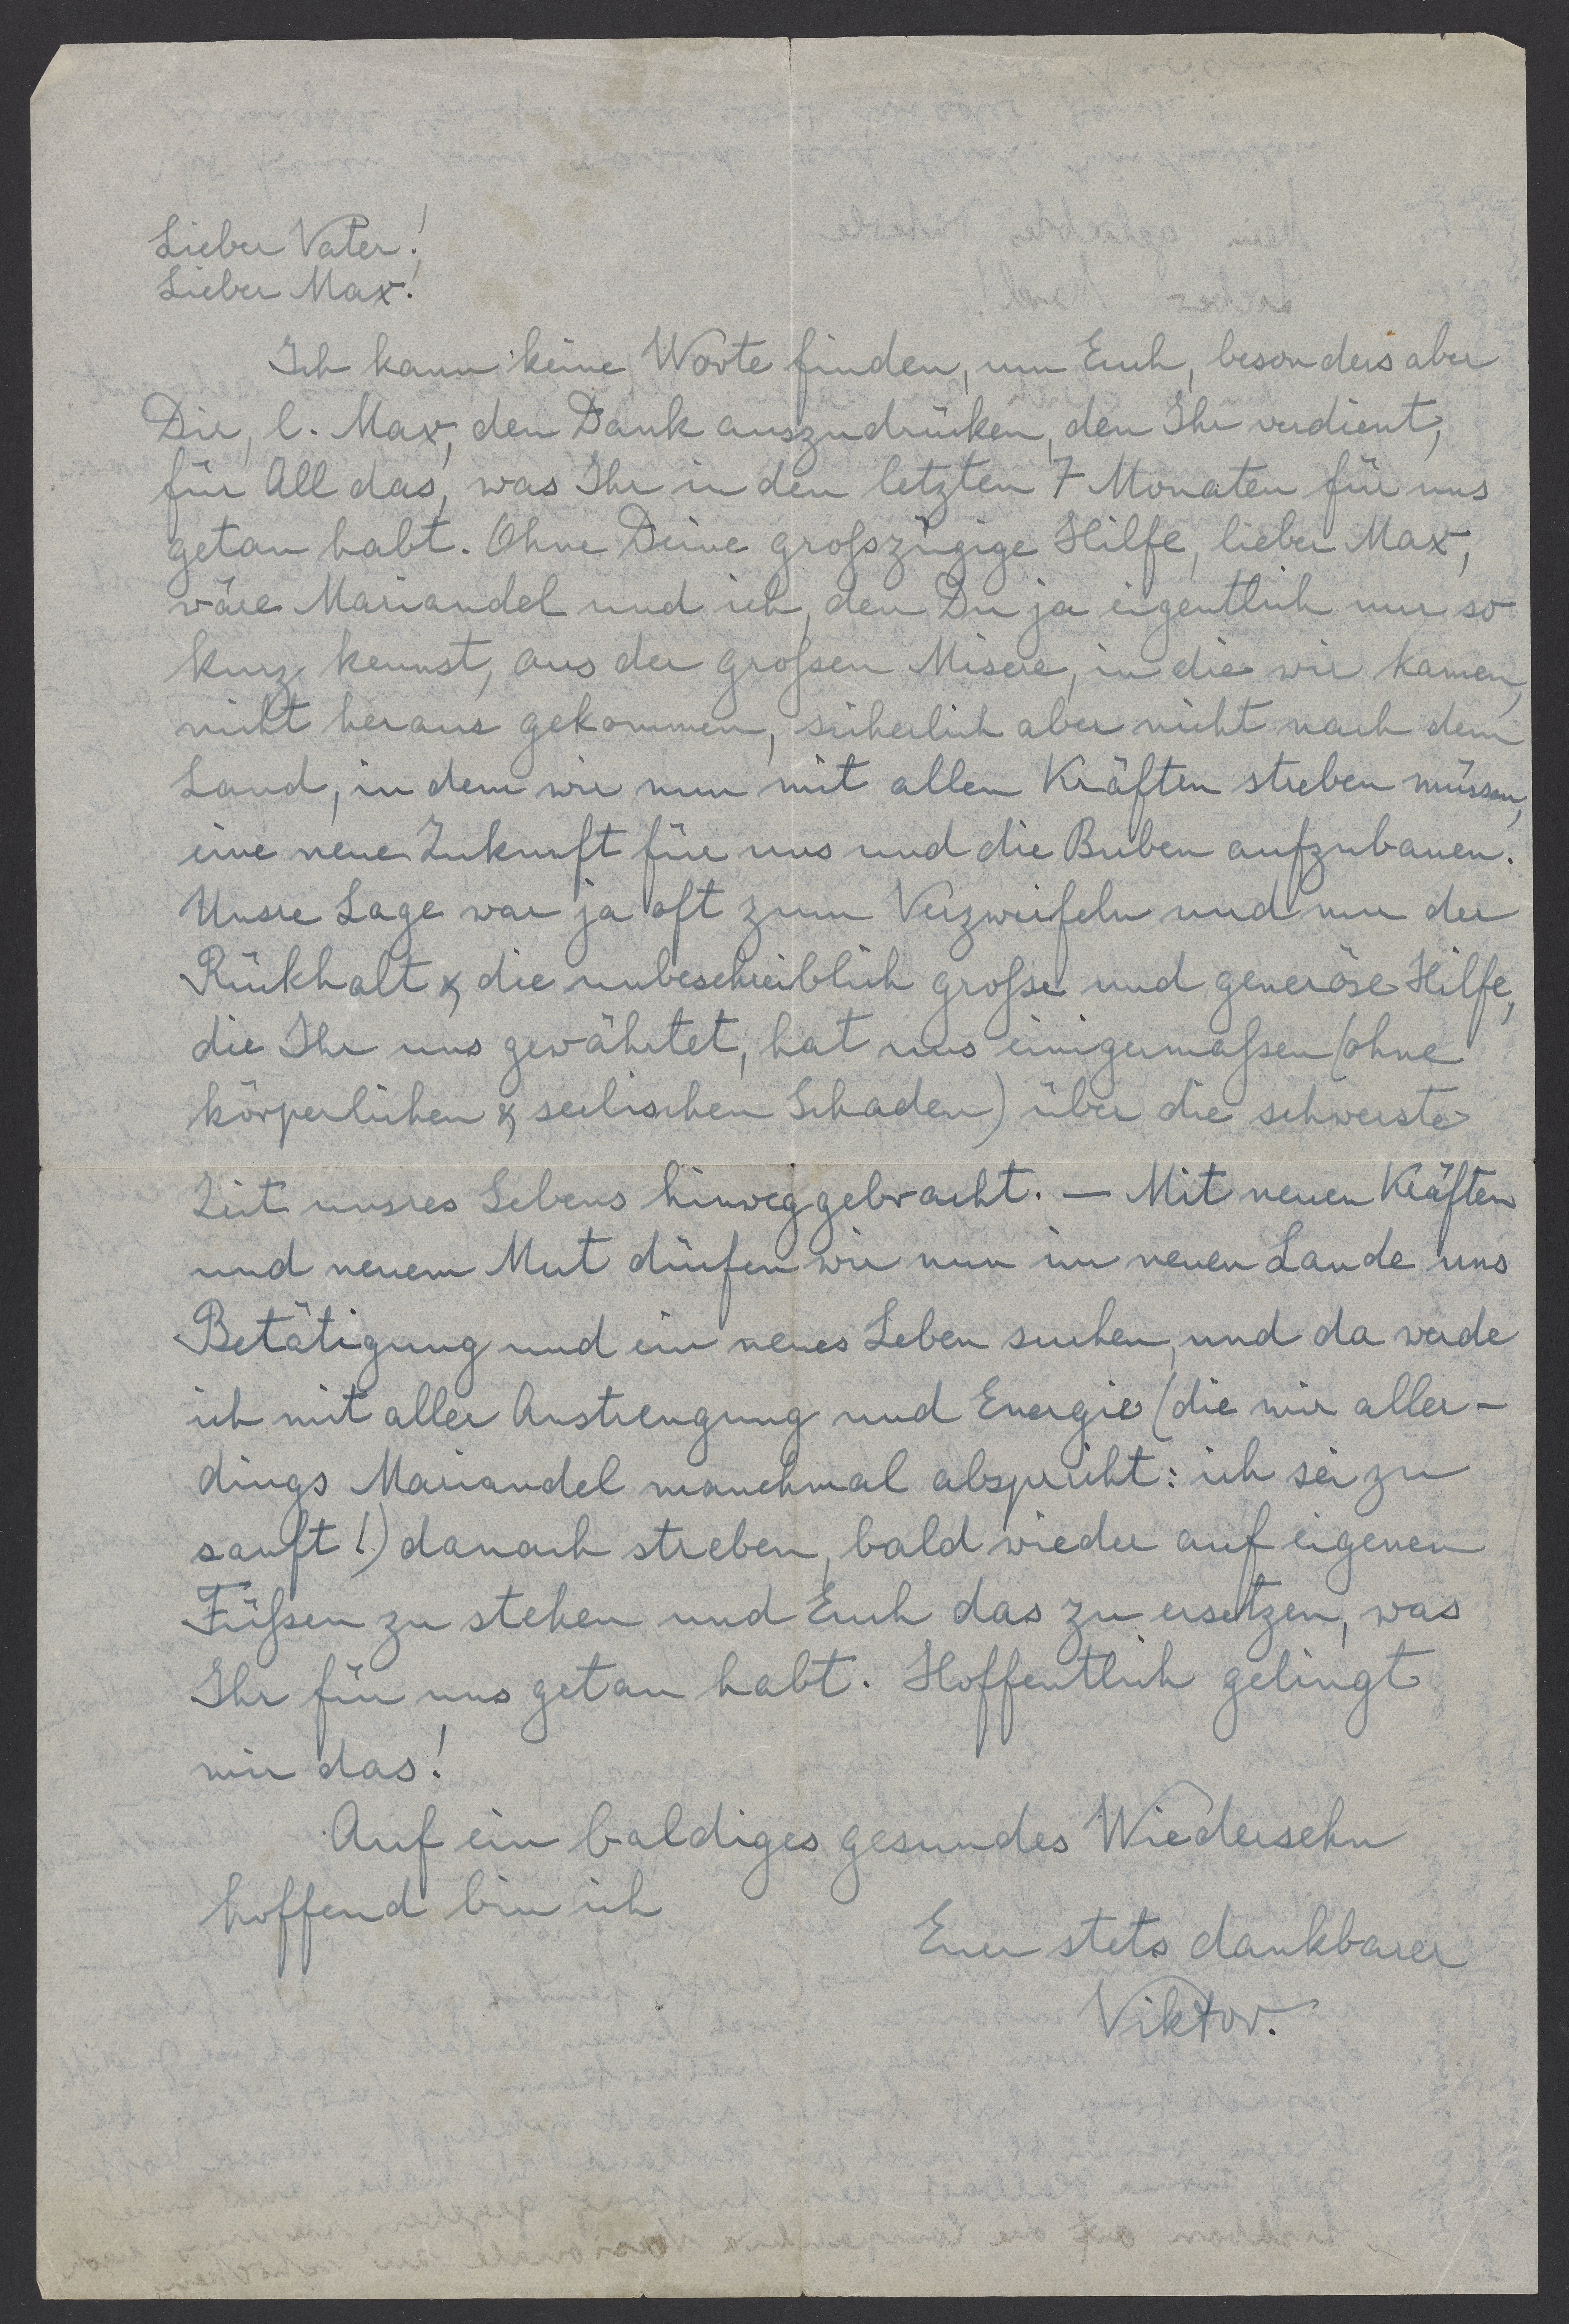 Lieber Vater!
Lieber Max!
Ich kann keine Worte finden, um Euch, besonders aber
Dir, l. Max, den Dank auszudrücken, den Ihr verdient,
für All das, was Ihr in den letzten 7 Monaten für uns
getan habt. Ohne Deine großzügige Hilfe, lieber Max,
wäre Mariandel und ich, den Du ja eigentlich nur so
kurz kennst, aus der großen Misere, in die wir kamen,
nicht heraus gekommen, sicherlich aber nicht nach dem
Land, in dem wir nun mit allen Kräften streben müssen,
eine neue Zukunft für uns und die Buben aufzubauen.
Unsre Lage war ja oft zum Verzweifeln und nur der
Rückhalt & die unbeschreiblich große und generöse Hilfe,
die Ihr uns gewährtet, hat uns einigermaßen (ohne
körperlichen & seelischen Schaden) über die schwerste
Zeit unsres Lebens hinweggebracht. — Mit neuen Kräften
und neuem Mut dürfen wir nun im neuen Lande uns
Betätigung und ein neues Leben suchen, und da werde
ich mit aller Anstrengung und Energie (die mir aller-
dings Mariandel manchmal abspricht: ich sei zu
sanft!) danach streben, bald wieder auf eigenen
Füßen zu stehen und Euch das zu ersetzen, was
Ihr für uns getan habt. Hoffentlich gelingt
mir das!
Auf ein baldiges gesundes Wiedersehn
hoffend bin ich
Euer stets dankbarer
Viktor.